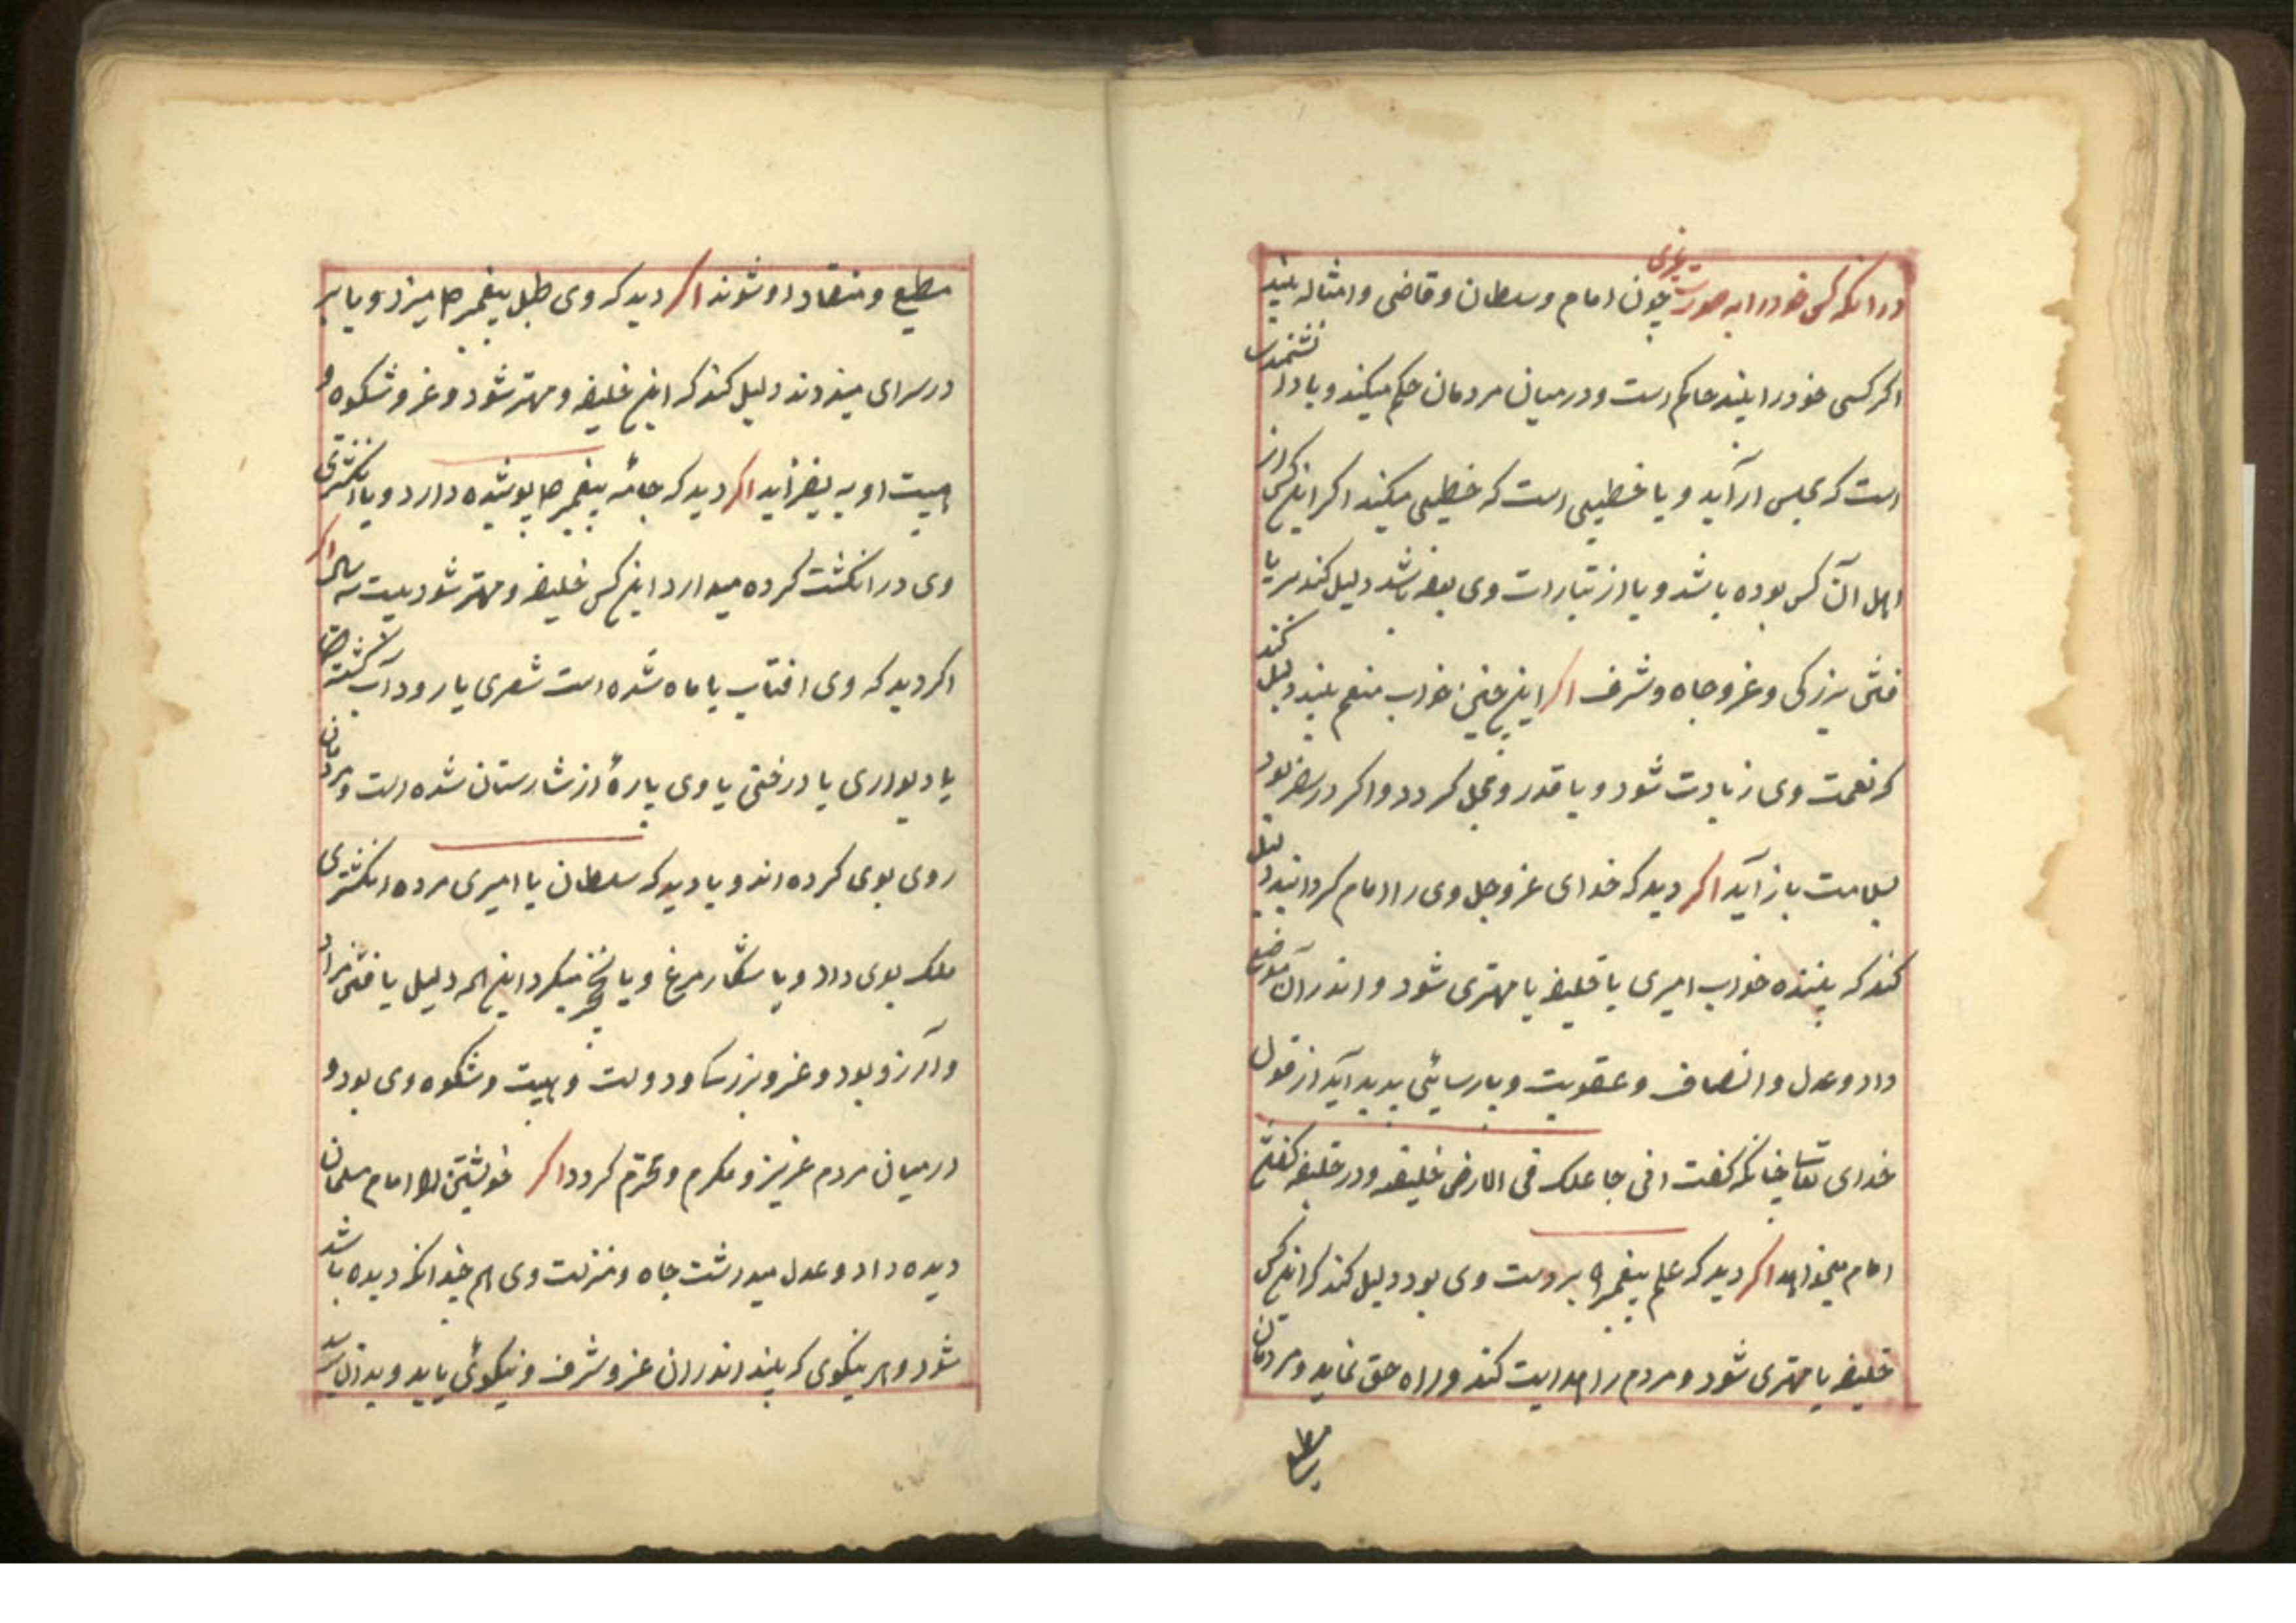 در آنکه کسی خود را به صورت غیری چون امام و سلطان و قاضی و امثاله بیند
اگر کسی خود را بیند حاکم است و در میان مردمان حکم میکند و یا دانشمند
است که مجلس آرآید و یا خطیبی است که خطیبی میکند اگر این کس از
اهل آن کس بوده باشد و یا از تبارات وی بوده باشد دلیل کند مر یا
فتن بزرکی و عز و جاه و شرف اگر این چنین خواب منعم بیند دلیل کند
که نعمت وی زیادت شود و با قدر و محل کردد و اکر در سفر بود
بسلامت باز آید اگر دید که خدای عز و جل وی را امام کردانید دلیل
کند که بیننده خواب امیری یا خلیفه یا مهتری شود و اندر آن موضع
داد و عدل و انصاف و عقوبت و پارسائی پدید آید از قول
خدای تعالی چنانکه کفت انی جاعلک فی الارض خلیفه و در خلیفه کفتن
امام میخواهد اگر دید که علم پیغمبر بردست وی بود دلیل کند که این کس
خلیفه یا مهتری شود و مردم را هدایت کند و راه حق نماید و مردمان
مطیع
مطیع و منقاد او شوند اگر دید که وی طبل پیغمبر ص میزد و یا بر
در سرای میزدند دلیل کند که این خلیفه و مهتر شود و عز و شکوه و
هیبت او به بفزاید اگر دید که جامٔه پیغمبر ص پوشیده دارد و یا انکشتری
وی در انکشت کرده میدارد این کس خلیفه و مهتر شود
اکر دید که وی افتاب یا ماه شده است شهری یا رود آب کشته
یا دیواری یا درختی یا وی پارهٔ از شارستان شده است و مردمان
روی بوی کرده اند و یا دید که سلطان یا امیری مرده انکشتری
ملک بوی داد و یا شکار مرغ و یا نخجیر میکرد این همه دلیل یافتن مراد
و آرزو بود و عز و بزرکی و دولت و هیبت و شکوه وی بود و
در میان مردم عزیز و مکرم و محترم کردد اگر خویشتن را امام مسلمانان
دیده داد و عدل میدرشت جاه و منزلت وی هم چندانکه دیده باشد
شود و هر نیکوی که بیند اندران عز و شرف و نیکوئی یابد و بدان رسد